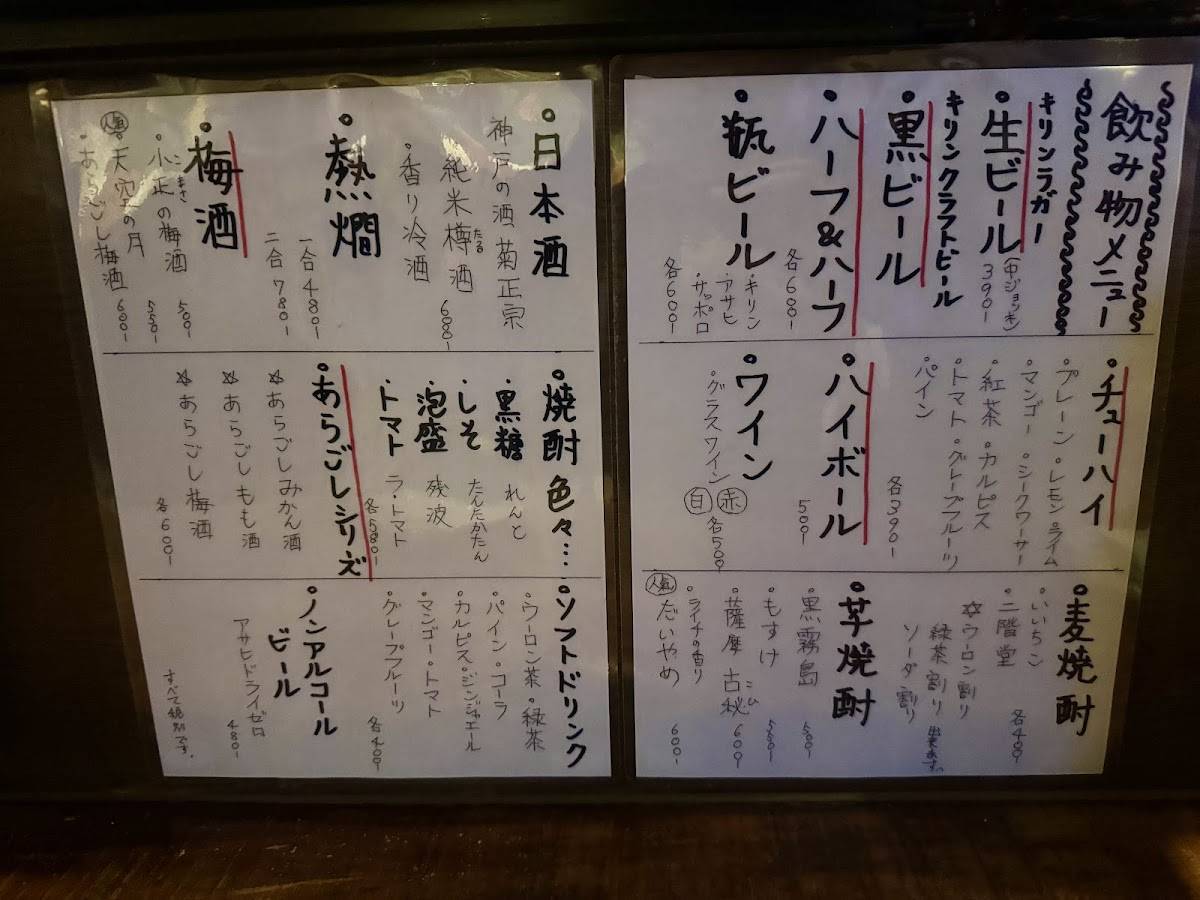 飲み物メニュー
キリンラガー
・生ビール
(中ジョッキ)
390-
キリンクラフトビール
・黒ビール
・ハーフ&ハーフ
各600-
・瓶ビール
・キリン
・アサヒ
・サッポロ
各600-
・チューハイ
・プレーン・レモン・ライム
・マンゴー・シークワーサー
・紅茶・カルピス
・トマト・グレープフルーツ
・パイン
各390-
・ハイボール
500-
・ワイン
・グラスワイン
白 赤
各500-
・麦焼酎
・いいちこ
・二階堂
各400-
☆ウーロン割り
緑茶割り
ソーダ割り
出来ます。
・芋焼酎
・黒霧島
500-
・もすけ
580-
・薩摩古秘
こひ
600-
・ライチの香り
人気
・だいやめ
600-
・日本酒
神戸の酒 菊正宗
・純米樽酒
たる
680-
・香り冷酒
・熱燗
一合480-
二合780-
・梅酒
・小正の梅酒
こまさ
500-
人気
・天空の月
550-
・あらごし梅酒
600-
・焼酎色々…
・黒糖 れんと
・しそ たんたかたん
・泡盛 残波
・トマト ラ・トマト
各580-
・あらごしシリーズ
☆あらごしみかん酒
☆あらごしもも酒
☆あらごし梅酒
各600-
・ソフトドリンク
・ウーロン茶・緑茶
・パイン・コーラ
・カルピス・ジンジャエール
・マンゴー・トマト
・グレープフルーツ
各400-
・ノンアルコール
ビール
アサヒドライゼロ
480-
すべて税別です。